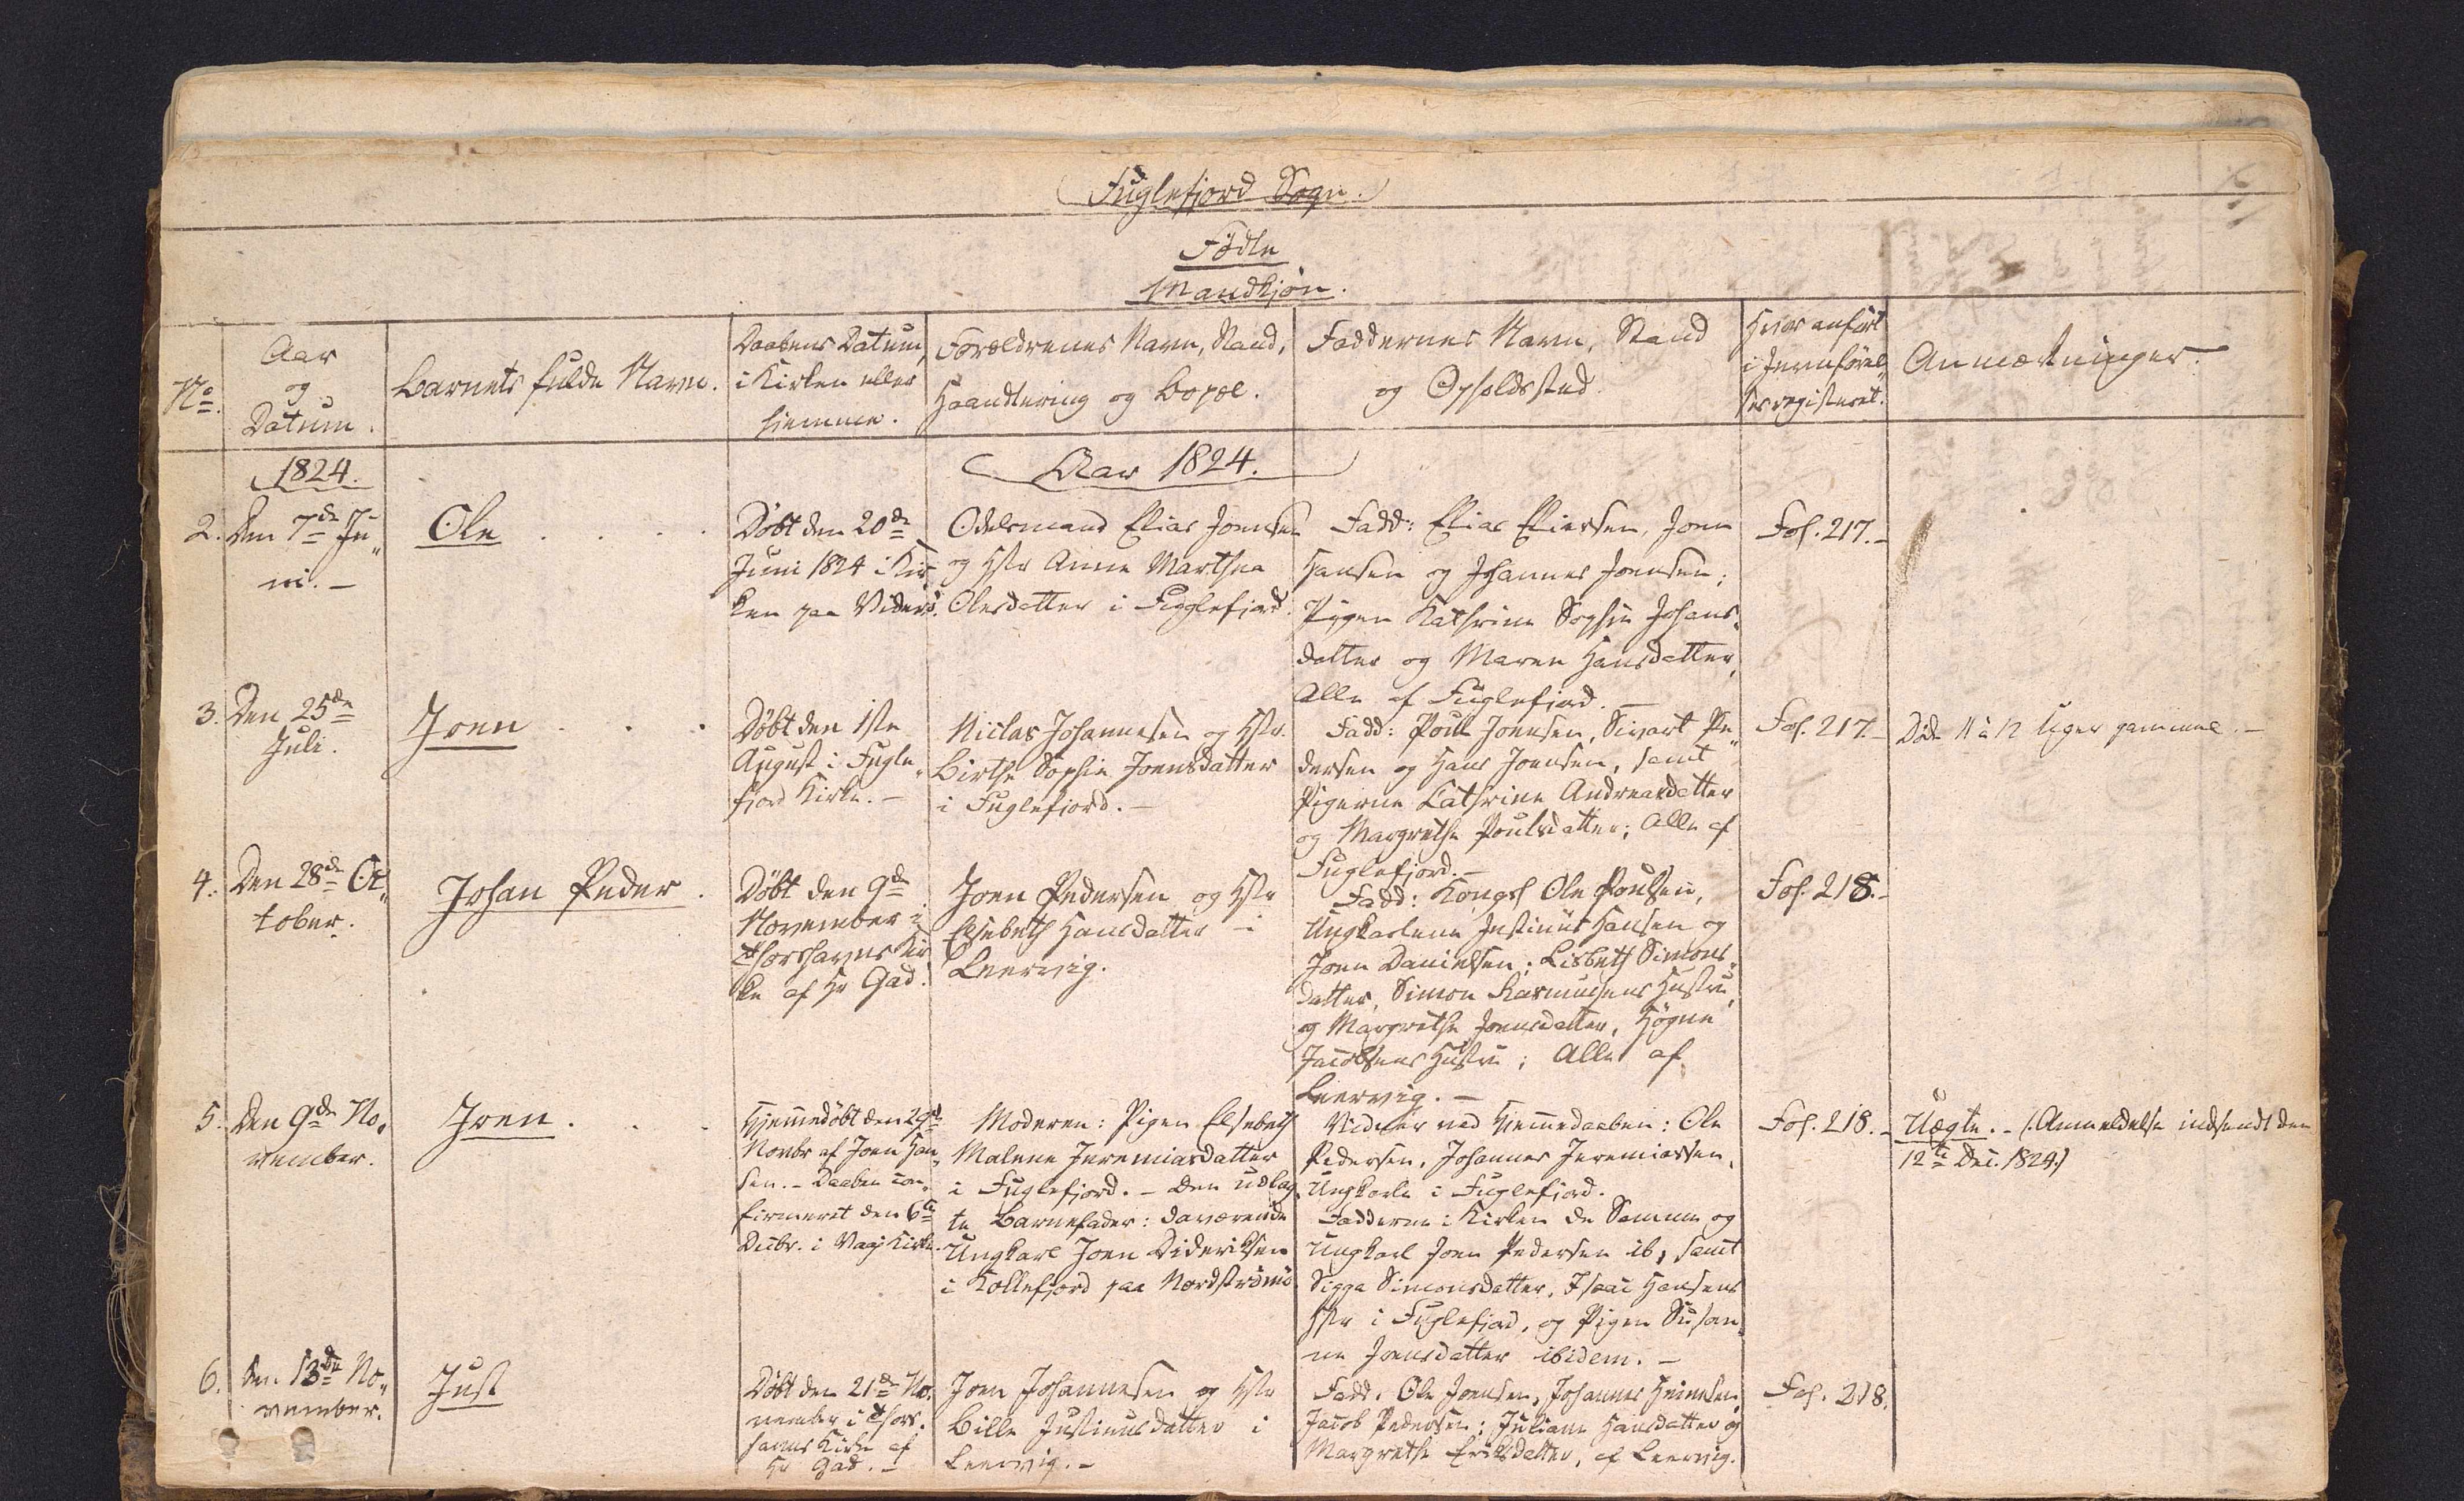 Fuglefjord Sogn.
Födte
Mandkjön.
No.
Aar
og
Datum.
Barnets fulde Navn.
Daabens Datum,
i Kirken eller
hiemme.
Forældrenes Navn, Stand,
Haandtering og Bopæl.
Faddernes Navn, Stand
og Opholdssted.
Hvor anfört
i Jevnförel„
sesregisteret.
Anmærkninger.
1824.
Aar 1824.
2.
Den 7de Ju„
ni. –
Ole
Döbt den 20de
Juni 1824 i Kir„
ken paa Viderö.
Odelsmand Elias Joensen
og Hstr Anne Marthea
Olesdatter i Fuglefjord.
Fadd: Elias Eliessen, Joen
Hansen og Johannes Joensen;
Pigen Kathrine Sophie Johans„
datter og Maren Hansdatter,
Alle af Fuglefjord. –
Fol. 217. –
3.
Den 25de
Juli.
Joen
Döbt den 1ste
August i Fugle„
fjord Kirke. –
Niclas Johannesen og Hstr.
Birthe Sophie Joensdatter
i Fuglefjord. –
Fadd: Poul Joensen, Sivart Pe„
dersen og Hans Joensen, samt
Pigerne Cathrine Andreasdatter
og Margrethe Poulsdatter; Alle af
Fuglefjord. –
Fol. 217. –
Död 11 à 12 Uger gammel. –
4.
Den 28de Oc„
tober.
Johan Peder
Döbt den 9de
November i
Thorshavns Kir„
ke af Hr Gad.
Joen Pedersen og Hstr
Elsebeth Hansdatter i
Leervig.
Fadd: Kongsf Ole Poulsen,
Ungkarlene Justinus Hansen og
Joen Danielsen; Lisbeth Simons„
datter, Simon Rasmusens Hustru,
og Margrethe Joensdatter, Högne
Jacobsens Hustru; Alle af
Leervig. –
Fol. 218. –
5.
Den 9de No„
vember.
Joen
Hjemedöbt den 29de
Novbr af Joen Han„
sen. – Daaben con„
firmeret den 6te
Decbr. i Vaag Kirke.
Moderen: Pigen Elsebeth
Malene Jeremiasdatter
i Fuglefjord. – Den udlag„
te Barnefader: daværende
Ungkarl Joen Didriksen
i Kollefjord paa Nordströmö.
Vidner ved Hiemedaaben: Ole
Pedersen, Johannes Jeremiassen,
Ungkarle i Fuglefjord.
Fadderne i Kirken de Samme og
Ungkarl Joen Pedersen ib, samt
Sigga Simonsdatter, Isaac Hansens
Hstr i Fuglefjord, og Pigen Susan„
ne Joensdatter ibidem. –
Fol. 218. –
Uægte. – (Anmeldelse indsendt den
12te Dec. 1824)
6.
Den 13de No„
vember.
Just
Döbt den 21de No„
vember i Thors„
havns Kirke af
Hr Gad. –
Joen Johannesen og Hstr
Bille Justinusdatter i
Leervig. –
Fadd. Ole Joensen, Johannes Heinesen,
Jacob Pedersen; Juliane Hansdatter og
Margrethe Eriksdatter, af Leervig.
Fol. 218.